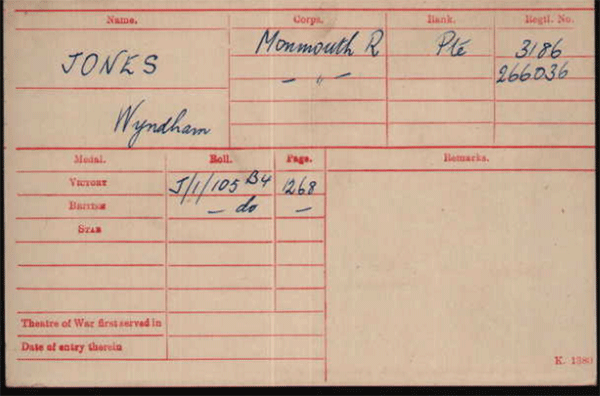 Name. Corps. Rank. Regtl. No.
JONES Monmouth R Pte 3186
— " — 266036
Wyndham
Medal. Roll. Page. Remarks.
Victory J/1/105 B4 1268
British — do —
Star
Theatre of War first served in
Date of entry therein
K. 1380